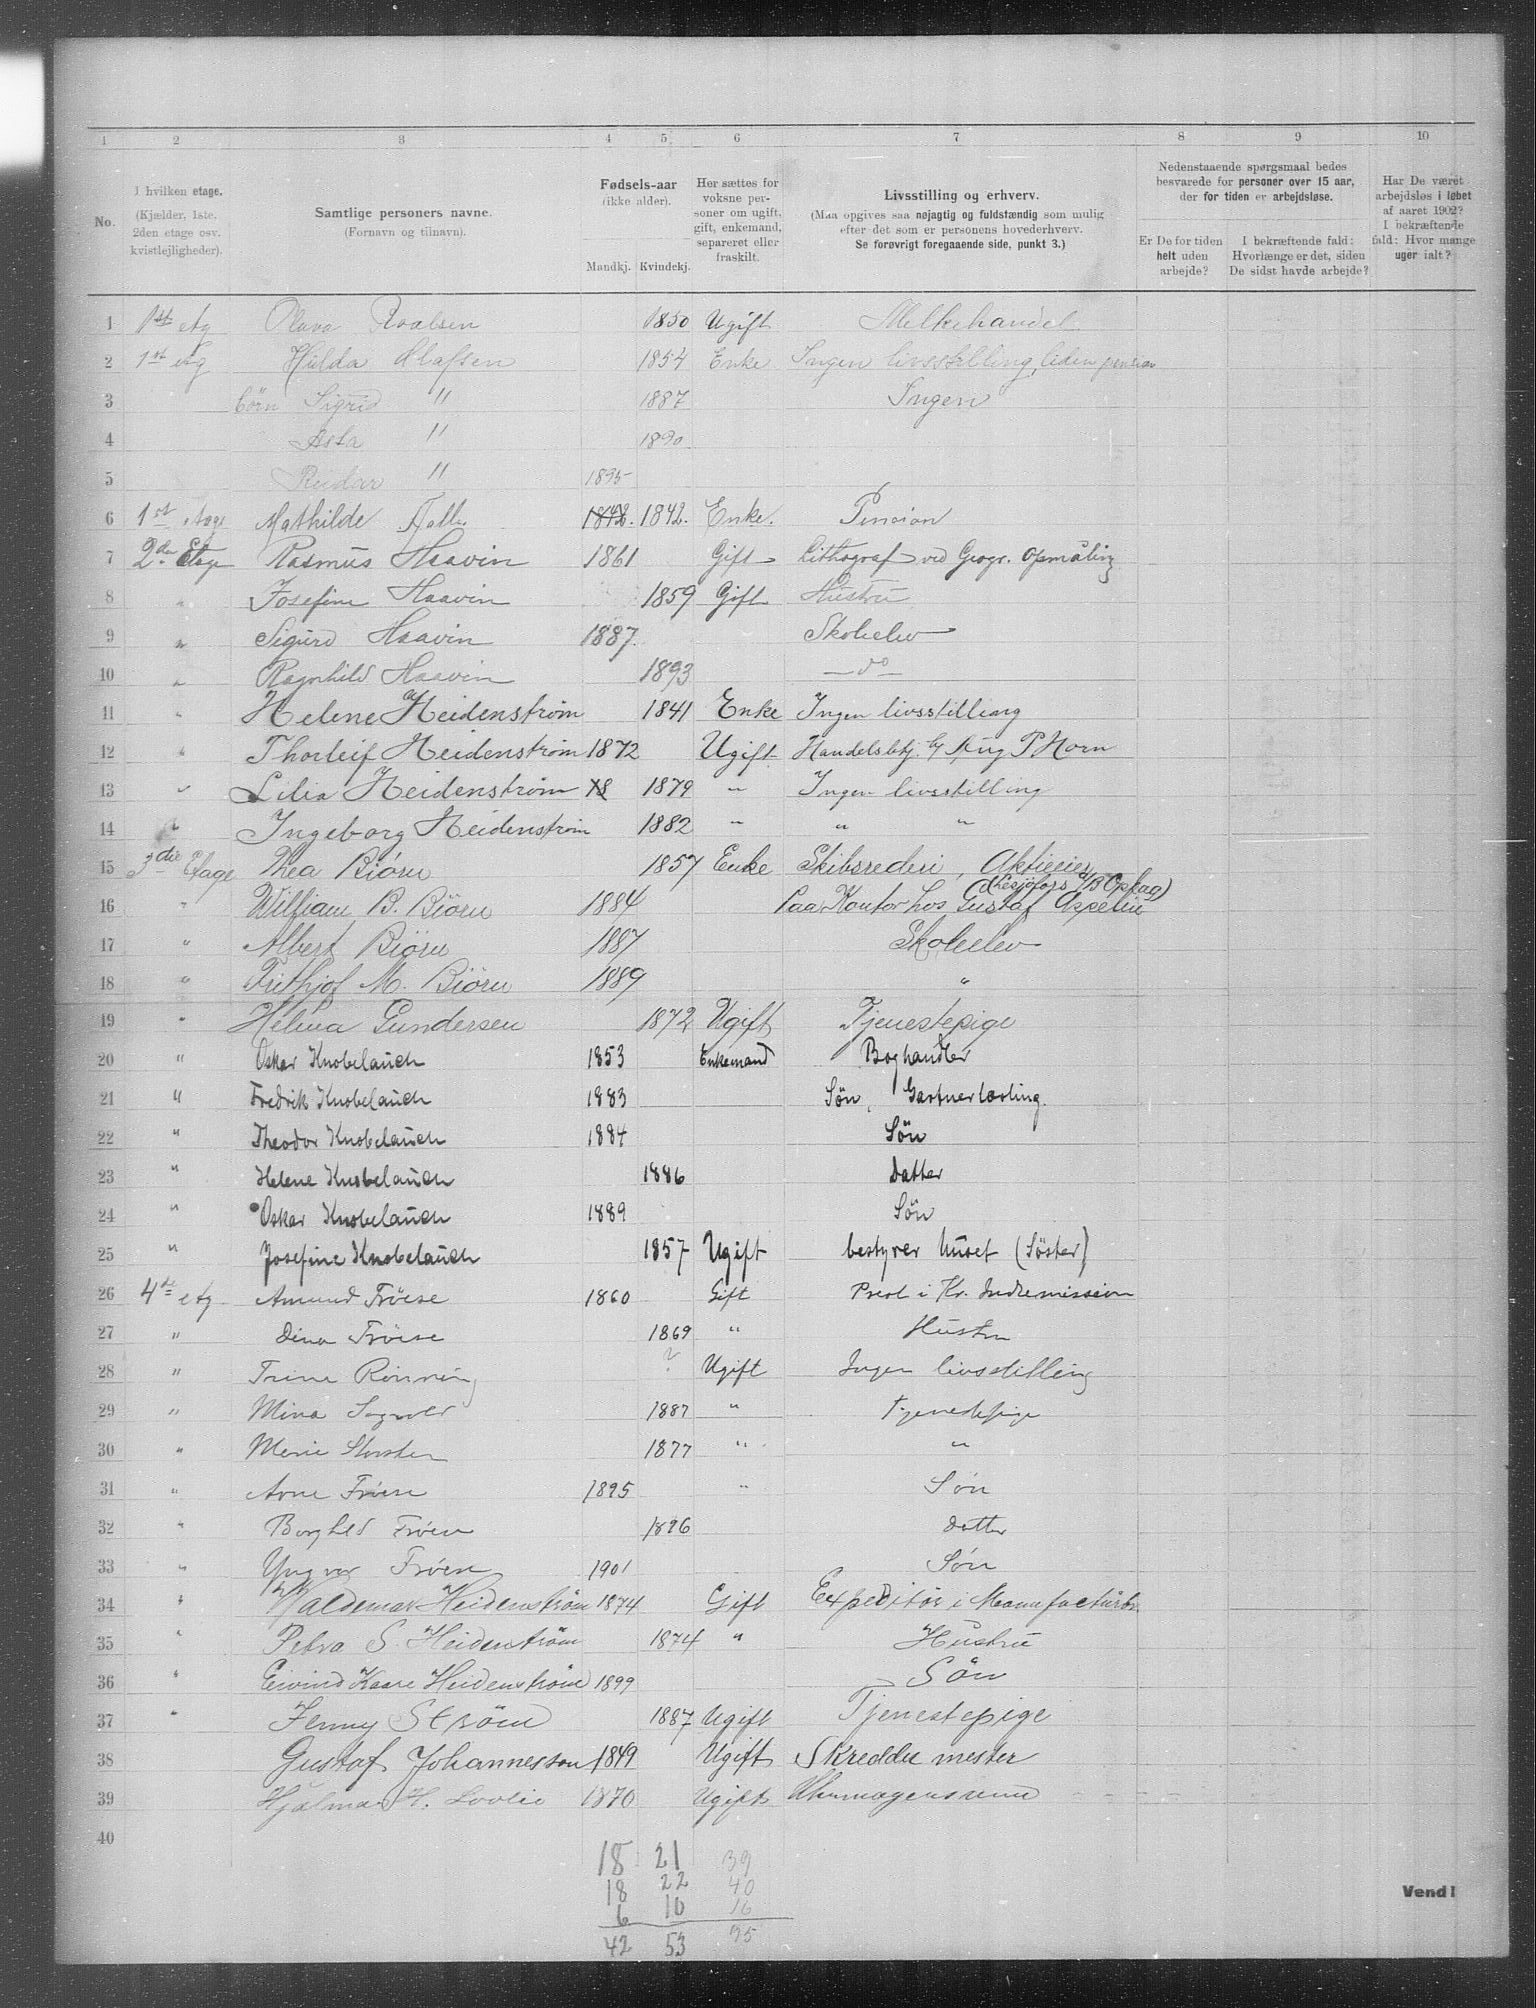 1 2 3 4 5 6 7 8 9 10
No.
I hvilken etage.
(Kjælder, 1ste, 2den etage osv. kvistlejligheder).
Samtlige personers navne.
(Fornavn og tilnavn).
Fødsels-aar
(ikke alder).
Mandkj. Kvindekj.
Her sættes for voksne personer om ugift, gift, enkemand, separeret eller fraskilt.
Livsstilling og erhverv.
(Maa opgives saa nøjagtig og fuldstændig som mulig efter det som er personens hovederhverv.
Se forøvrigt foregaaende side, punkt 3.)
Nedenstaaende spørgsmaal bedes besvarede for personer over 15 aar, der for tiden er arbejdsløse.
Er De for tiden helt uden arbejde?
I bekræftende fald: Hvorlænge er det, siden De sidst havde arbejde?
Har De været arbejdsløs i løbet af aaret 1902? I bekræftende fald: Hvor mange uger ialt?
1 1st etg Olava Roalsen 1850 Ugift Melkehandel
2 1st etg Hulda Olafsen 1854 Enke Ingen livsstilling, liden pension
3 börn Sigrid " 1887 Ingen
4 Asta " 1890
5 Reidar " 1895
6 1st etage Mathilde 1842. 1842. Enke. Pension
7 2den Etage Rasmus Haavin 1861 Gift Lithograf ved Geogr. Opmåling
8 " Josefine Haavin 1859 Gift Hustru
9 " Sigurd Haavin 1887. Skoleelev
10 " Ragnhild Haavin 1893 — do —
11 " Helene Heidenstrøm 1841 Enke Ingen livsstilling
12 " Thorleif Heidenstrøm 1872 Ugift Handelsbetj. hos Aug. P Horn
13 " Lilia Heidenstrøm 18 1879 " Ingen livsstilling
14 " Ingeborg Heidenstrøm 1882 " " "
15 3die Etage Thea Biørn 1857 Enke Skibsrederi, Aktieeier
16 " William B. Biörn 1884 Paa Kontor hos Gustaf Aspelin
17 " Albert Biörn 1887 Skoleelev
18 " Frithjof M. Biörn 1889 "
19 " Helma Gundersen 1872 Ugift Tjenestepige
20 " Oskar Knobelauch 1853 Enkemand Boghandler
21 " Fredrik Knobelauch 1883 Søn, Gartnerlærling.
22 " Theodor Knobelauch 1884 Søn
23 " Helene Knobelauch 1886 Datter
24 " Oskar Knobelauch 1889 Søn
25 " Josefine Knobelauch 1857 Ugift bestyrer huset (Søster)
26 4de etg Amund Frøise 1860 Gift Prest i Kr. Indremission
27 " Dina Frøise 1869 " Hustru
28 " Trine Rönning ? Ugift Ingen livsstilling
29 " Mina 1887 " Tjenestepige
30 " 1877 " "
31 " Arne Frøise 1895 " Søn
32 " Borghild Frøise 1896 datter
33 " Yngvar Frøise 1901 Søn
34 " Waldemar Heidenstrøm 1874 Gift Expeditør i Manufacturbr.
35 " Petra S. Heidenstrøm 1874 " Hustru
36 " Eivind Kaare Heidenstrøm 1899 Søn
37 " Jenny Strøm 1887 Ugift Tjenestepige
38 Gustaf Johannesson 1849 Ugift Skredder mester
39 Hjalmar H. 1870 Ugift Uhrmagersvend
40
18 21 39
18 22 40
6 10 16
42 53 95
Vend!